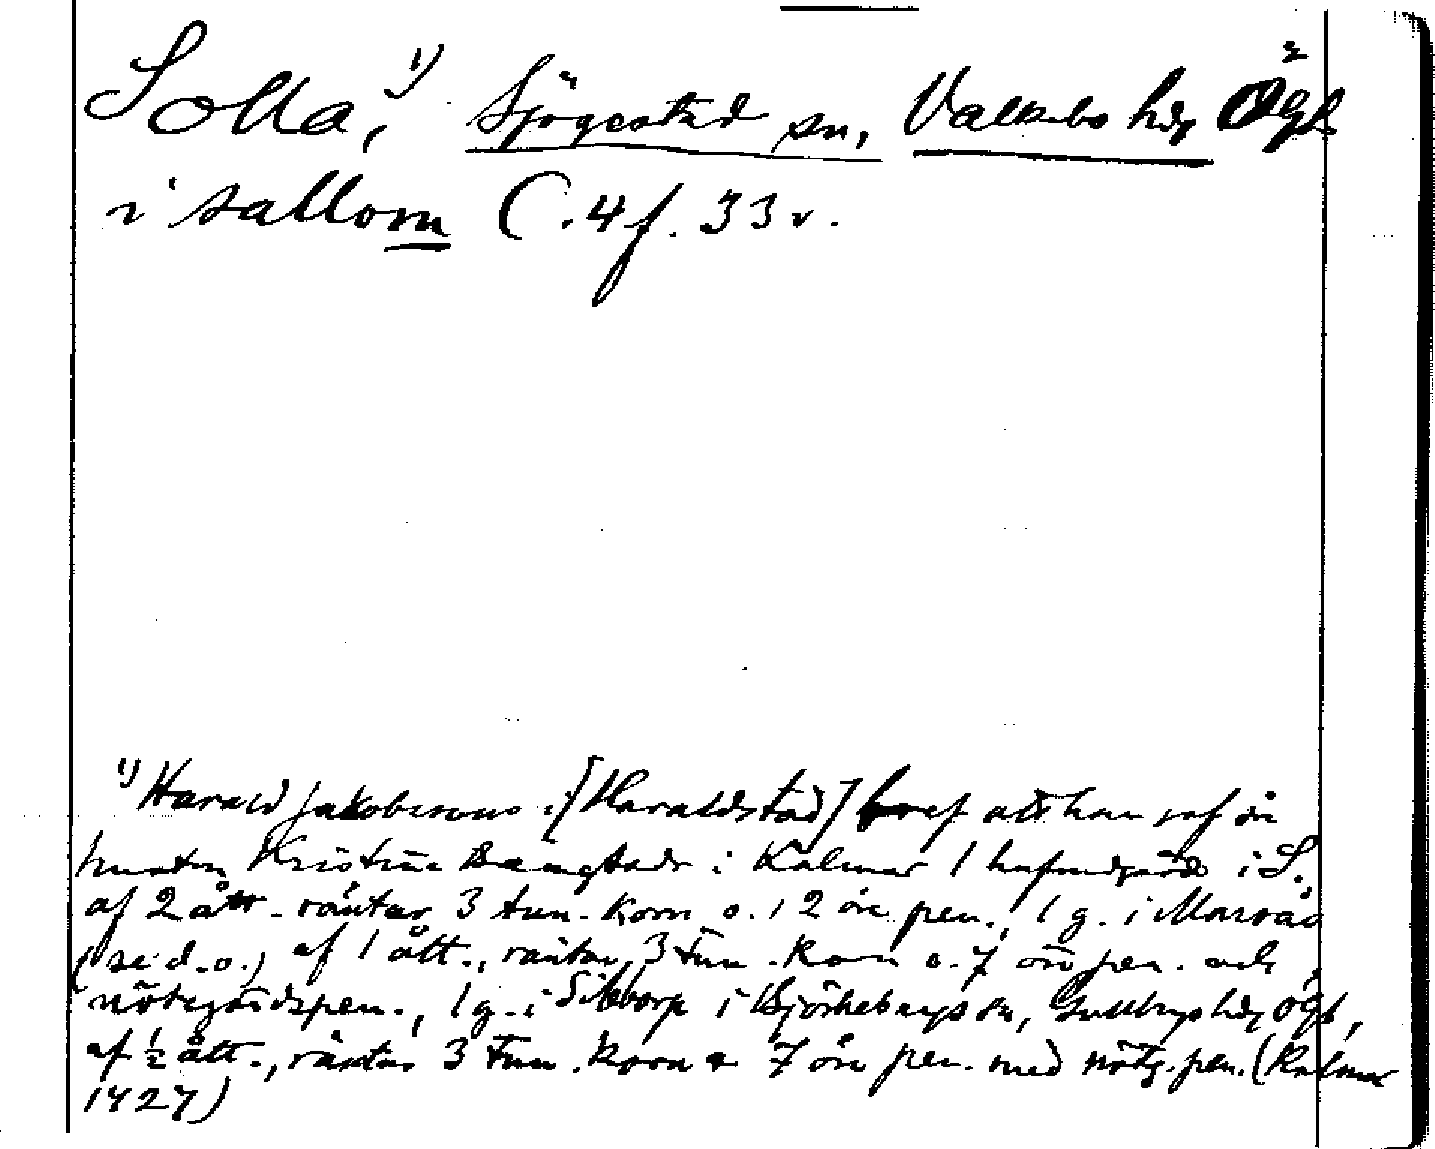 Solla, 1) Sjögestad sn, Valkebo hd, Ögl
i sallom C. 4 f. 33 v.
1) Harald Jakobssons i [Haraldstad] bref att han gaf sin
hustru Kristina Bængtsdr i Kalmar 1 hufvudgård i S.,
af 2 ått. räntar 3 tun. korn o. 12 öre pen., 1 g. i
(se d. o.) af 1 ått., räntar 3 tun. korn o. 7 öre pen. och
nötegärdspen., 1 g. i i Björkebergs sn, Gullbergs hd, Ögl,
af ½ ått., räntar 3 tun. korn o 7 öre pen. med nötg.pen. (Kalmar
1427)